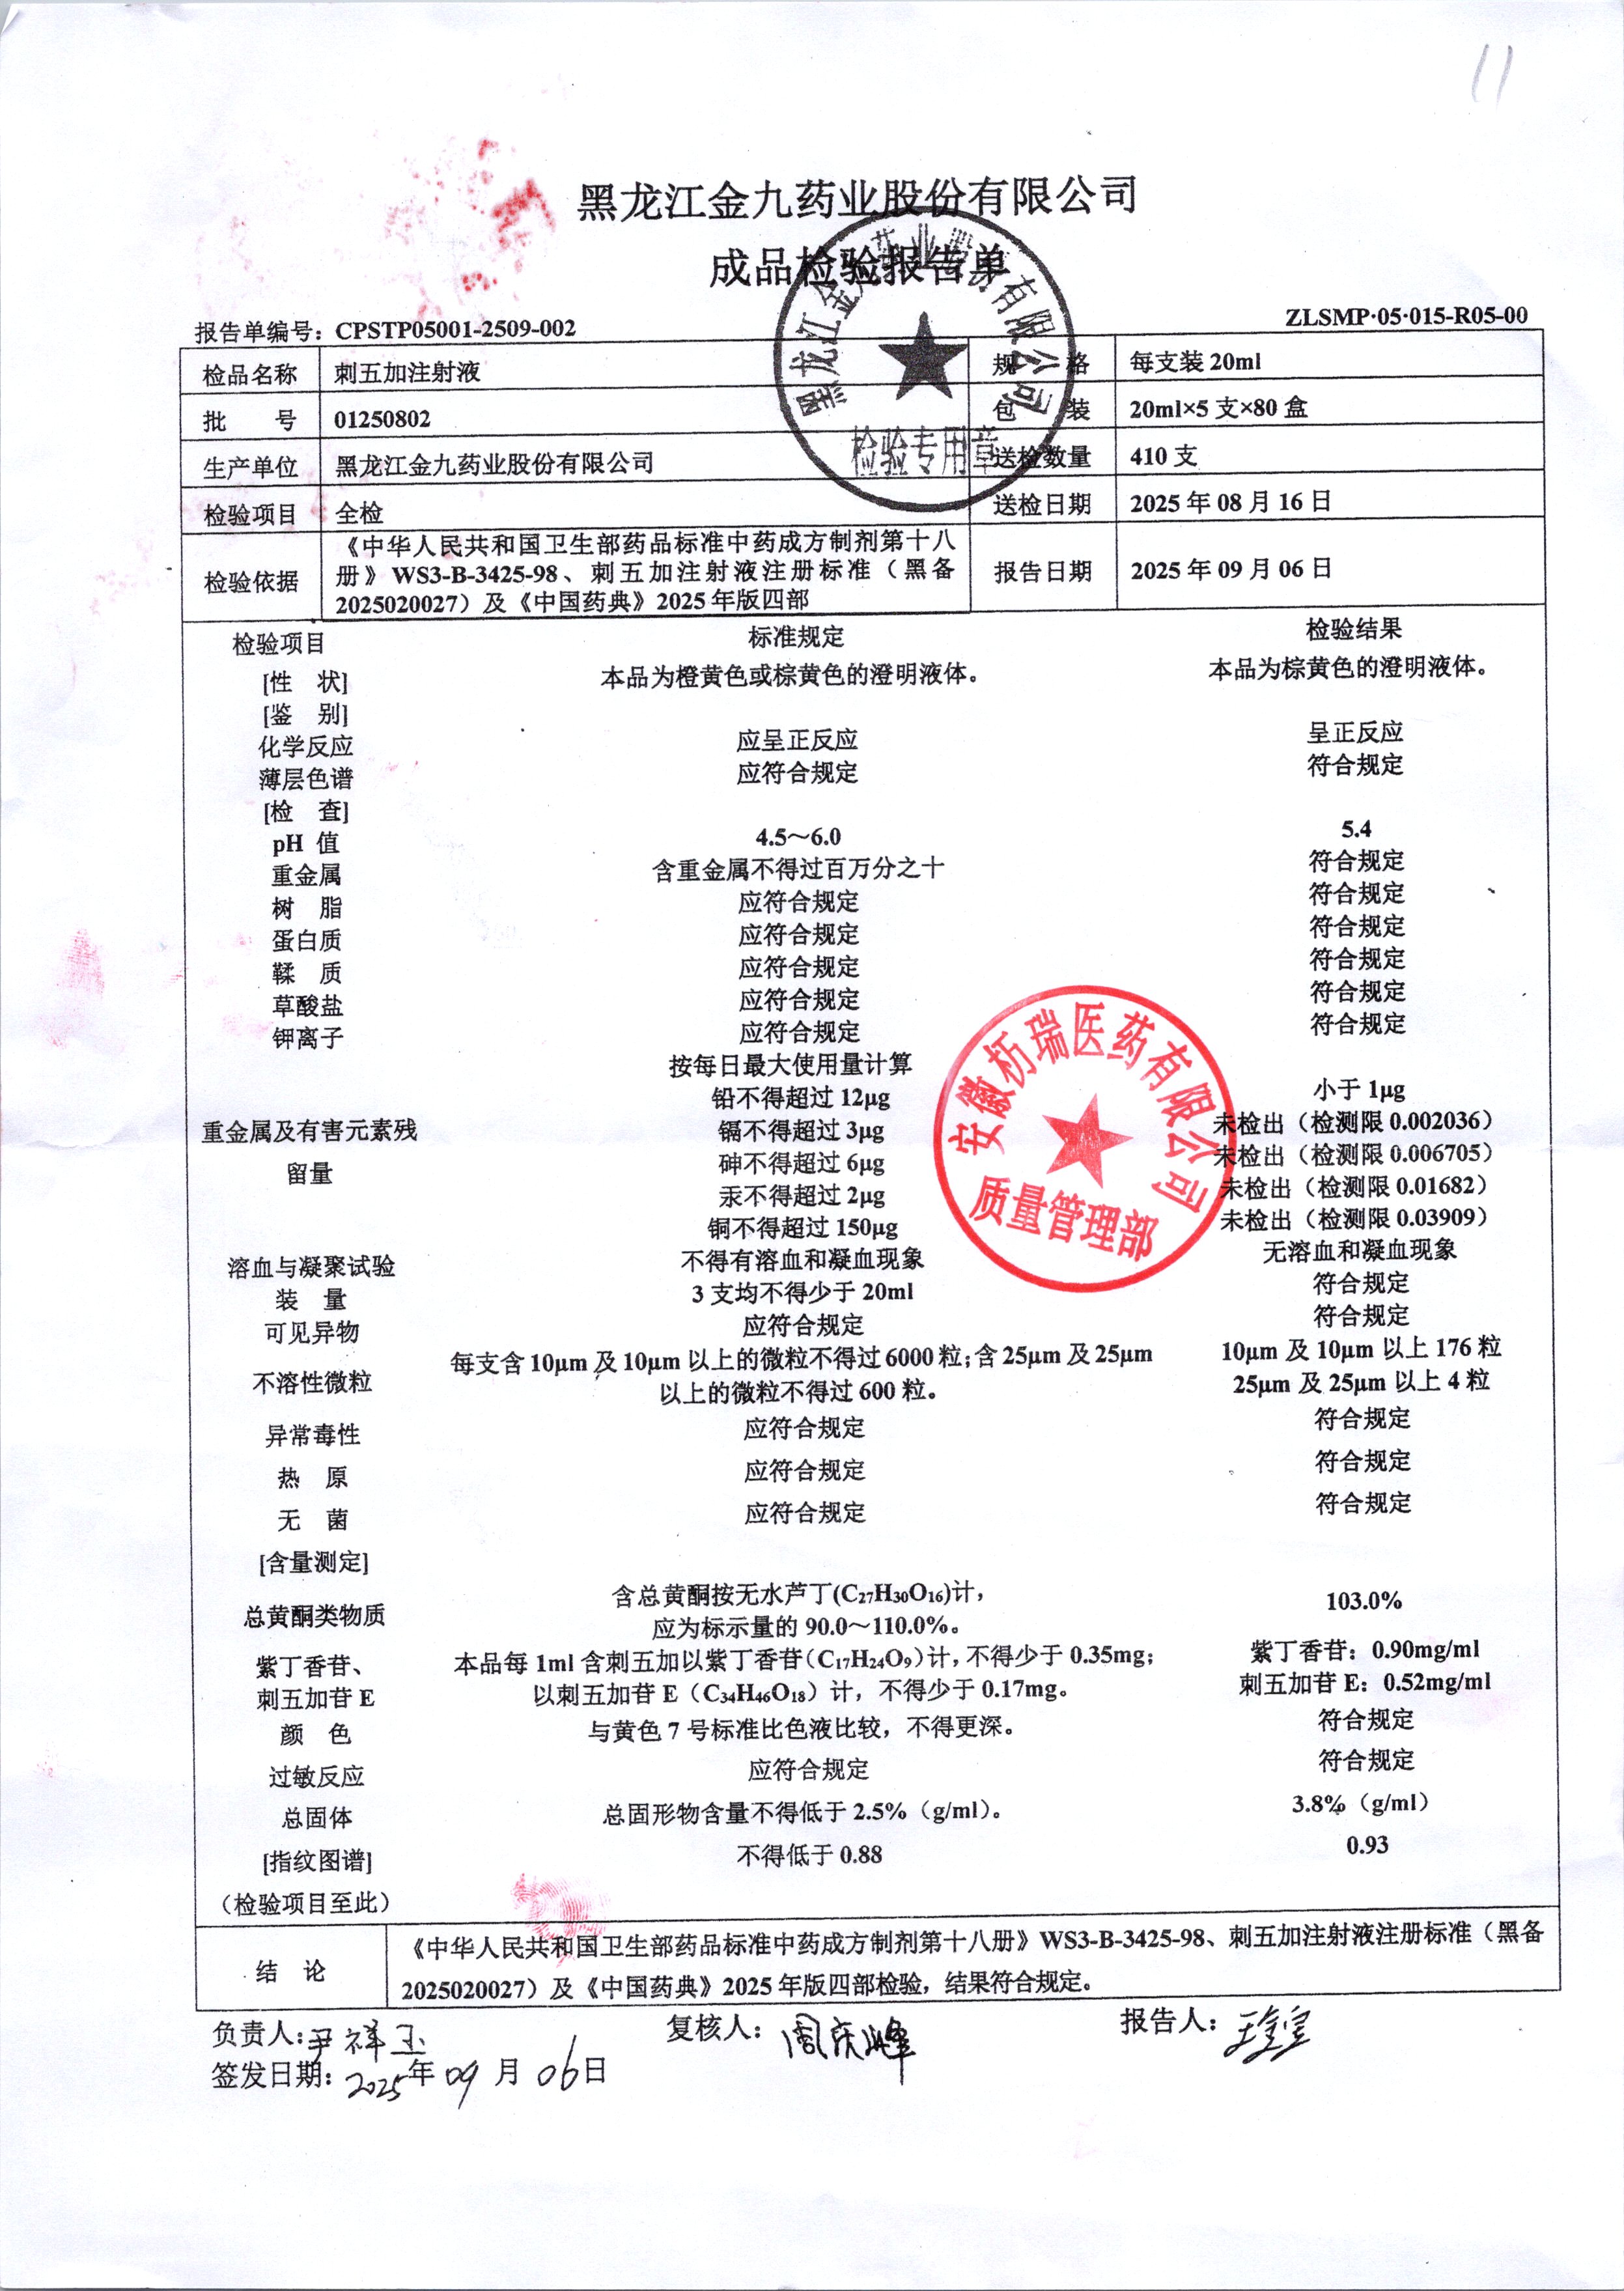 11
黑龙江金九药业股份有限公司
成品检验报告单
报告单编号：CPSTP05001-2509-002
ZLSMP·05·015-R05-00
检品名称 刺五加注射液 规 格 每支装 20ml
批 号 01250802 包 装 20ml×5 支×80 盒
生产单位 黑龙江金九药业股份有限公司 送检数量 410 支
检验项目 全检 送检日期 2025 年 08 月 16 日
检验依据 《中华人民共和国卫生部药品标准中药成方制剂第十八
册》WS3-B-3425-98、刺五加注射液注册标准（黑备
2025020027）及《中国药典》2025 年版四部
报告日期 2025 年 09 月 06 日
黑龙江金九药业股份有限公司
检验专用章
检验项目 标准规定 检验结果
[性 状] 本品为橙黄色或棕黄色的澄明液体。 本品为棕黄色的澄明液体。
[鉴 别]
化学反应 应呈正反应 呈正反应
薄层色谱 应符合规定 符合规定
[检 查]
pH 值 4.5～6.0 5.4
重金属 含重金属不得过百万分之十 符合规定
树 脂 应符合规定 符合规定
蛋白质 应符合规定 符合规定
鞣 质 应符合规定 符合规定
草酸盐 应符合规定 符合规定
钾离子 应符合规定 符合规定
重金属及有害元素残
留量
按每日最大使用量计算
铅不得超过 12μg 小于 1μg
镉不得超过 3μg 未检出（检测限 0.002036）
砷不得超过 6μg 未检出（检测限 0.006705）
汞不得超过 2μg 未检出（检测限 0.01682）
铜不得超过 150μg 未检出（检测限 0.03909）
安徽枥瑞医药有限公司
质量管理部
溶血与凝聚试验 不得有溶血和凝血现象 无溶血和凝血现象
装 量 3 支均不得少于 20ml 符合规定
可见异物 应符合规定 符合规定
不溶性微粒 每支含 10μm 及 10μm 以上的微粒不得过 6000 粒；含 25μm 及 25μm
以上的微粒不得过 600 粒。
10μm 及 10μm 以上 176 粒
25μm 及 25μm 以上 4 粒
异常毒性 应符合规定 符合规定
热 原 应符合规定 符合规定
无 菌 应符合规定 符合规定
[含量测定]
总黄酮类物质 含总黄酮按无水芦丁(C₂₇H₃₀O₁₆)计，
应为标示量的 90.0～110.0%。
103.0%
紫丁香苷、
刺五加苷 E
本品每 1ml 含刺五加以紫丁香苷（C₁₇H₂₄O₉）计，不得少于 0.35mg；
以刺五加苷 E（C₃₄H₄₆O₁₈）计，不得少于 0.17mg。
紫丁香苷：0.90mg/ml
刺五加苷 E：0.52mg/ml
颜 色 与黄色 7 号标准比色液比较，不得更深。 符合规定
过敏反应 应符合规定 符合规定
总固体 总固形物含量不得低于 2.5%（g/ml）。 3.8%（g/ml）
[指纹图谱] 不得低于 0.88 0.93
（检验项目至此）
结 论 《中华人民共和国卫生部药品标准中药成方制剂第十八册》WS3-B-3425-98、刺五加注射液注册标准（黑备
2025020027）及《中国药典》2025 年版四部检验，结果符合规定。
负责人：尹祥玉 复核人：周庆峰 报告人：
签发日期：2025年 09 月 06 日